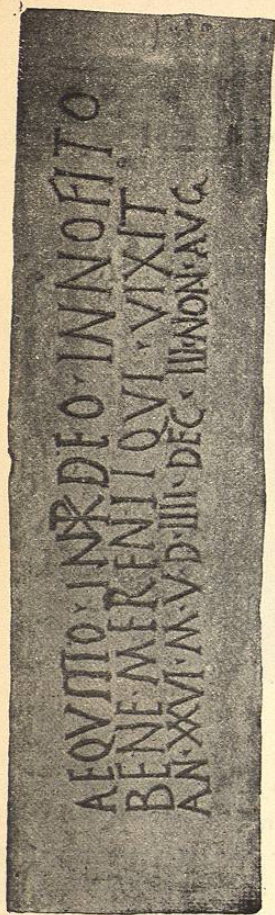 AEQVITIO · IN ☧ DEO · INNOFITO
BENE · MERENTI QVI · VIXIT
AN · XXVI · M · V · D · IIII · DEC · III · NON · AVG